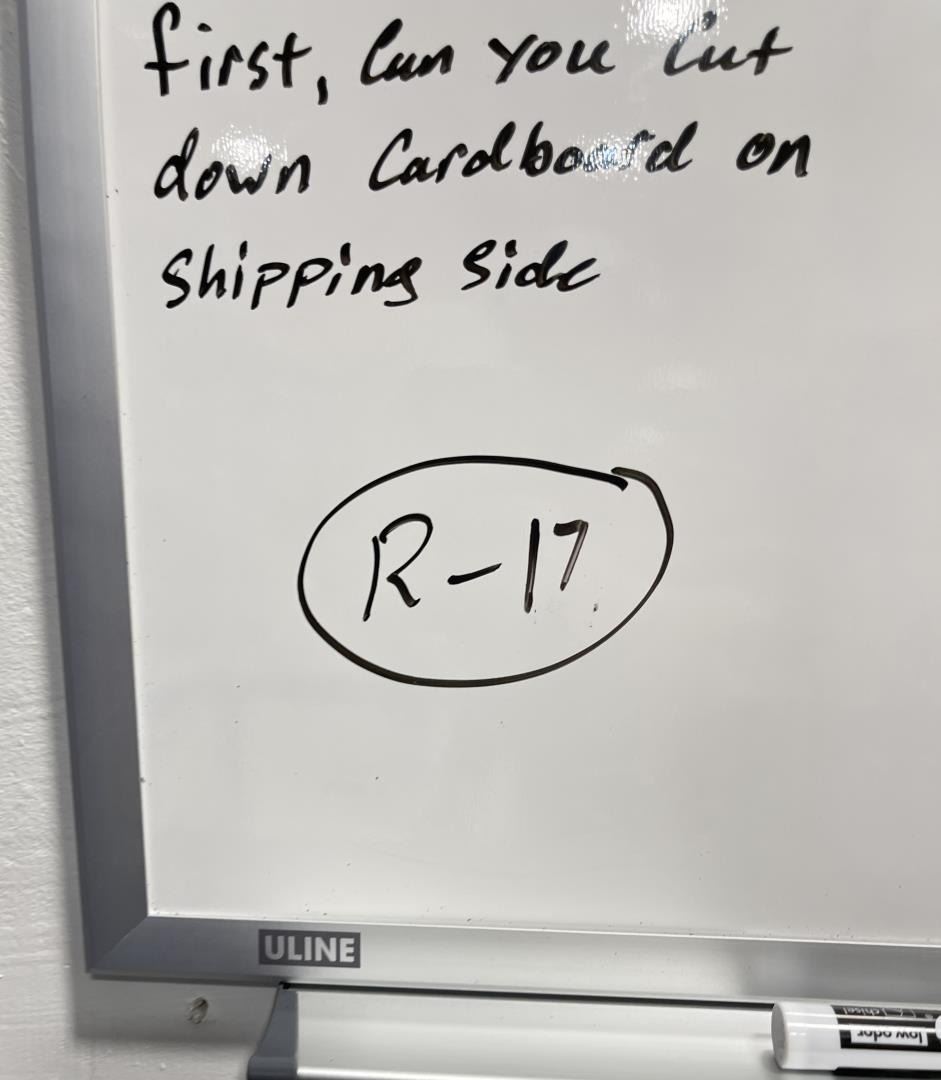 first, Can you Cut
down Cardboard on
Shipping Side
R-17
ULINE
chisel
low odor